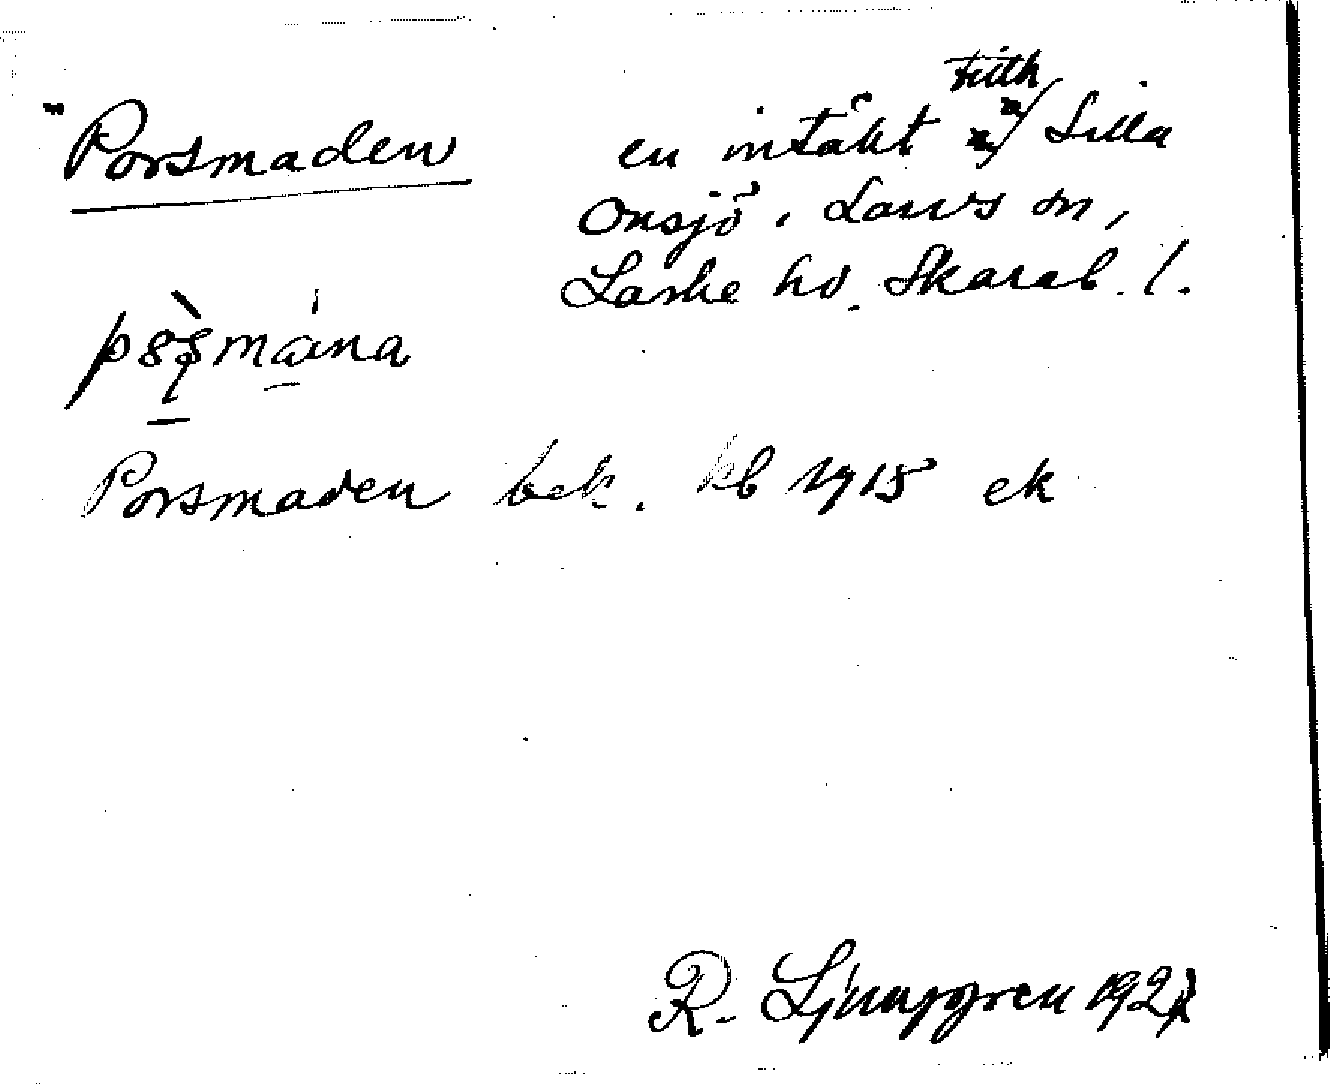 Porsmaden
en intäkt Lilla
Onsjö, Larvs sn,
Laske hd. Skarab. l.
Porsmaden bek. kb 1915 ek
R. Ljunggren 192